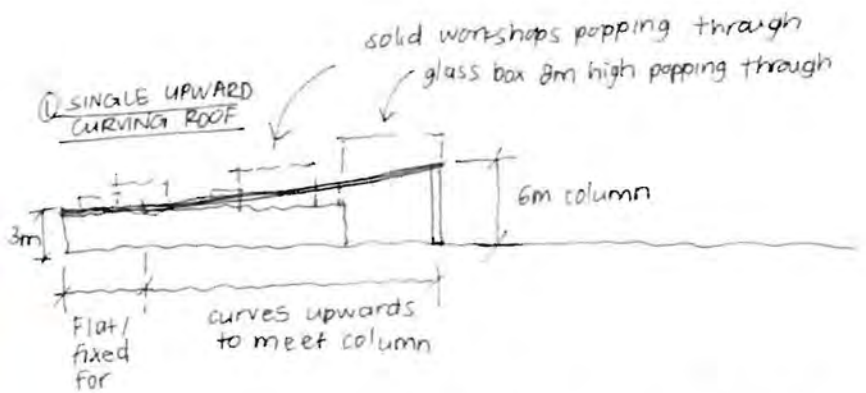 solid workshops popping through
glass box 8m high popping through
① SINGLE UPWARD
CURVING ROOF
6m column
3m
Flat/
fixed
for
curves upwards
to meet column